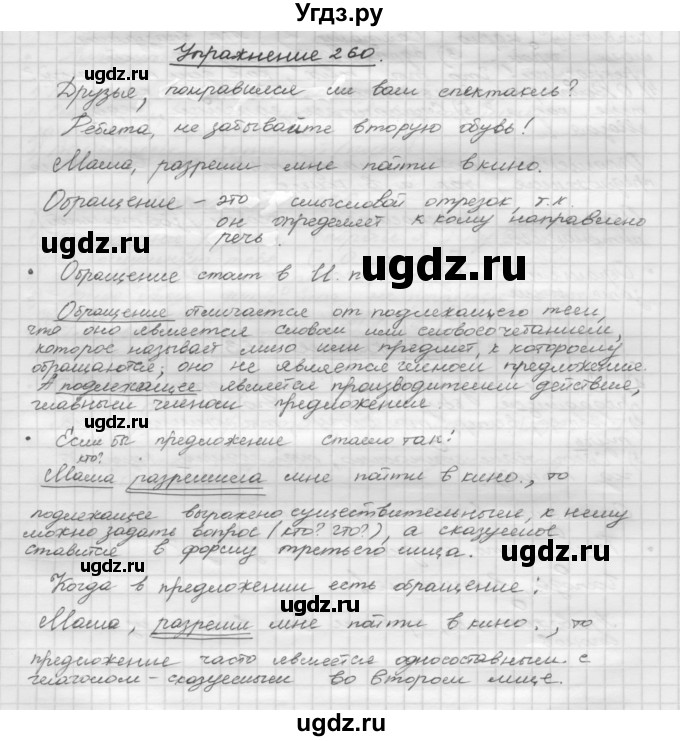 Угдз.ру
Упражнение 260.
Друзья, понравился ли вам спектакль?
Ребята, не забывайте вторую обувь!
Маша, разреши мне пойти в кино.
Обращение – это смысловой отрезок, т.к.
он определяет к кому направлено
речь.
• Обращение стоит в И. п
Обращение отличается от подлежащего тем,
что оно является словом или словосочетанием,
которое называет лицо или предмет, к которому
обращаются; оно не является членом предложение.
А подлежащее является производителем действия,
главным членом предложения.
• Если бы предложение стало так:
кто?
Маша разрешила мне пойти в кино., то
подлежащее выражено существительным, к нему
можно задать вопрос (кто? что?), а сказуемое
ставится в форму третьего лица.
Когда в предложении есть обращение:
Маша, разреши мне пойти в кино., то
предложение часто является односоставным с
глаголом-сказуемым во втором лице.
ugdz.ru
ugdz.ru
ugdz.ru
ugdz.ru
ugdz.ru
ugdz.ru
ugdz.ru
ugdz.ru
ugdz.ru
ugdz.ru
ugdz.ru